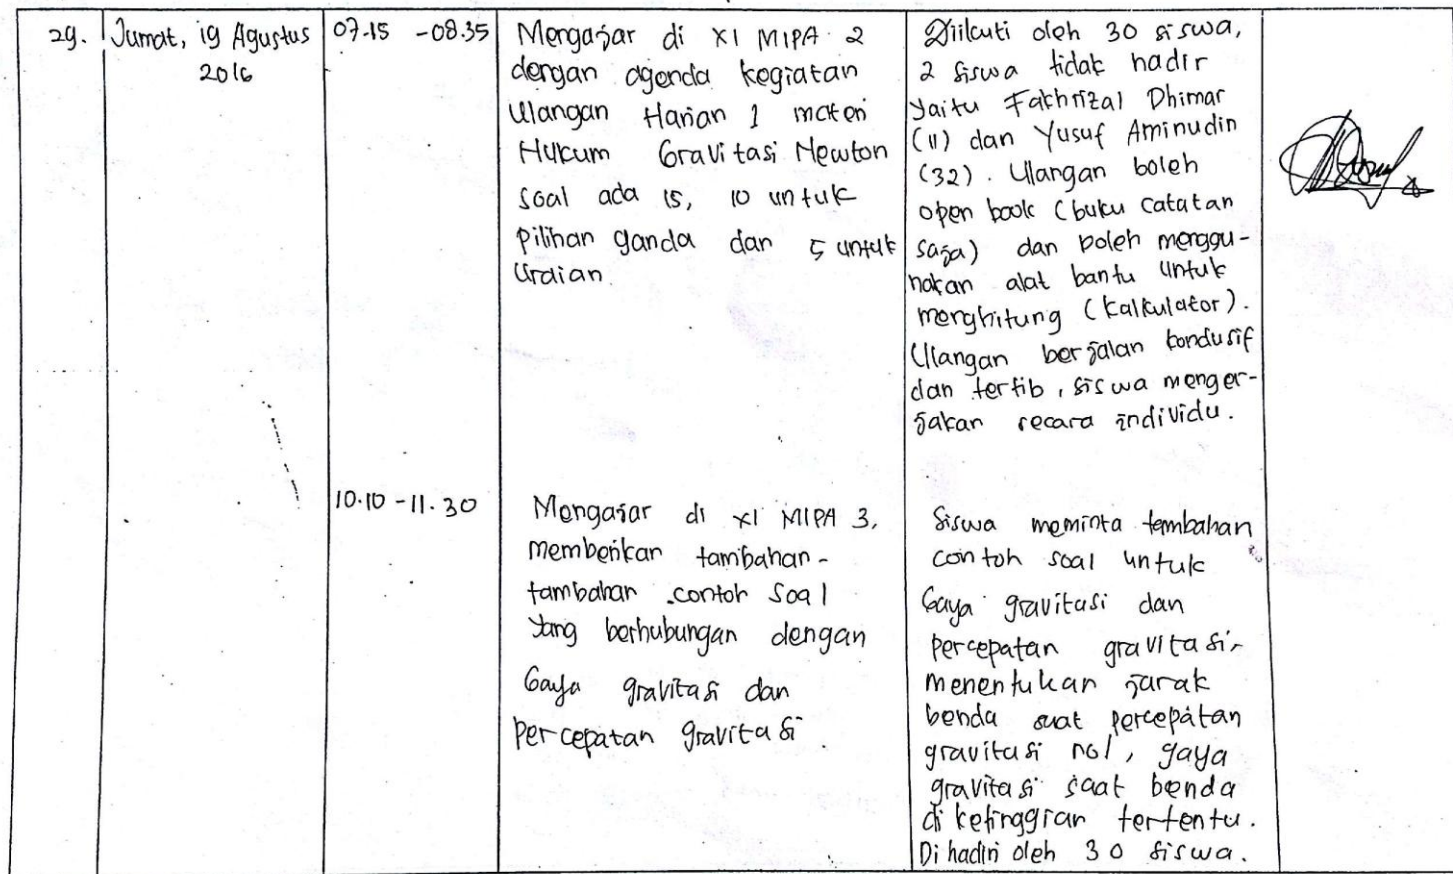 29.
Jumat, 19 Agustus
2016
07.15 - 08.35
Mengajar di XI MIPA 2
dengan agenda kegiatan
Ulangan Harian 1 materi
Hukum Gravitasi Newton
soal ada 15, 10 untuk
pilihan ganda dan 5 untuk
uraian.
Diikuti oleh 30 siswa,
2 siswa tidak hadir
yaitu Fathrizal Dhimar
(11) dan Yusuf Aminudin
(32). Ulangan boleh
open book (buku catatan
saja) dan boleh menggu-
nakan alat bantu untuk
menghitung (kalkulator).
Ulangan berjalan kondusif
dan tertib, siswa menger-
jakan secara individu.
10.10 - 11.30
Mengajar di XI MIPA 3,
memberikan tambahan-
tambahan contoh soal
yang berhubungan dengan
Gaya gravitasi dan
percepatan gravitasi.
Siswa meminta tambahan
contoh soal untuk
Gaya gravitasi dan
percepatan gravitasi,
menentukan jarak
benda saat percepatan
gravitasi nol, gaya
gravitasi saat benda
di ketinggian tertentu.
Dihadiri oleh 30 siswa.